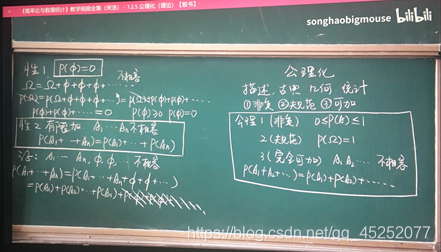 《概率论与数理统计》教学视频全集（宋浩） - 1.2.3 公理化（理论）【板书】
songhaobigmouse bilibili
性1 P(φ)=0 不相容
Ω=Ω+φ+φ+φ+······
P(Ω)=P(Ω+φ+φ+φ+···)=P(Ω)+P(φ)+P(φ)+····
P(φ)+P(φ)+····=0 P(φ)≥0 P(φ)=0
性2 有限可加 A₁···An不相容
P(A₁+···+An)=P(A₁)+···+P(An)
证: A₁···An, φ, φ, ··· 不相容
P(A₁+···+An)=P(A₁+···+An+φ+φ+···)
=P(A₁)+P(A₂)+···+P(An)
公理化
描述 古典 几何 统计
①非负 ②规范 ③可加
公理1(非负) 0≤P(A)≤1
2(规范) P(Ω)=1
3(完全可加) A₁ A₂···· 不相容
P(A₁+A₂+···)=P(A₁)+P(A₂)+·····
https://blog.csdn.net/qq_45252077